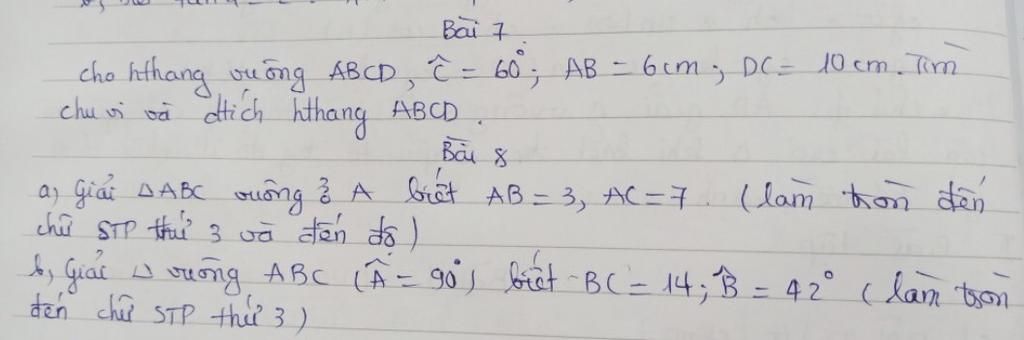 Bài 7.
cho hthang vuông ABCD, Ĉ = 60°; AB = 6cm; DC = 10cm. Tìm
chu vi và dtích hthang ABCD.
Bài 8
a, Giải △ABC vuông ở A biết AB = 3, AC = 7. (làm tròn đến
chữ STP thứ 3 và đến độ)
b, Giải △ vuông ABC (Â = 90°) biết BC = 14; B̂ = 42° (làm tròn
đến chữ STP thứ 3)